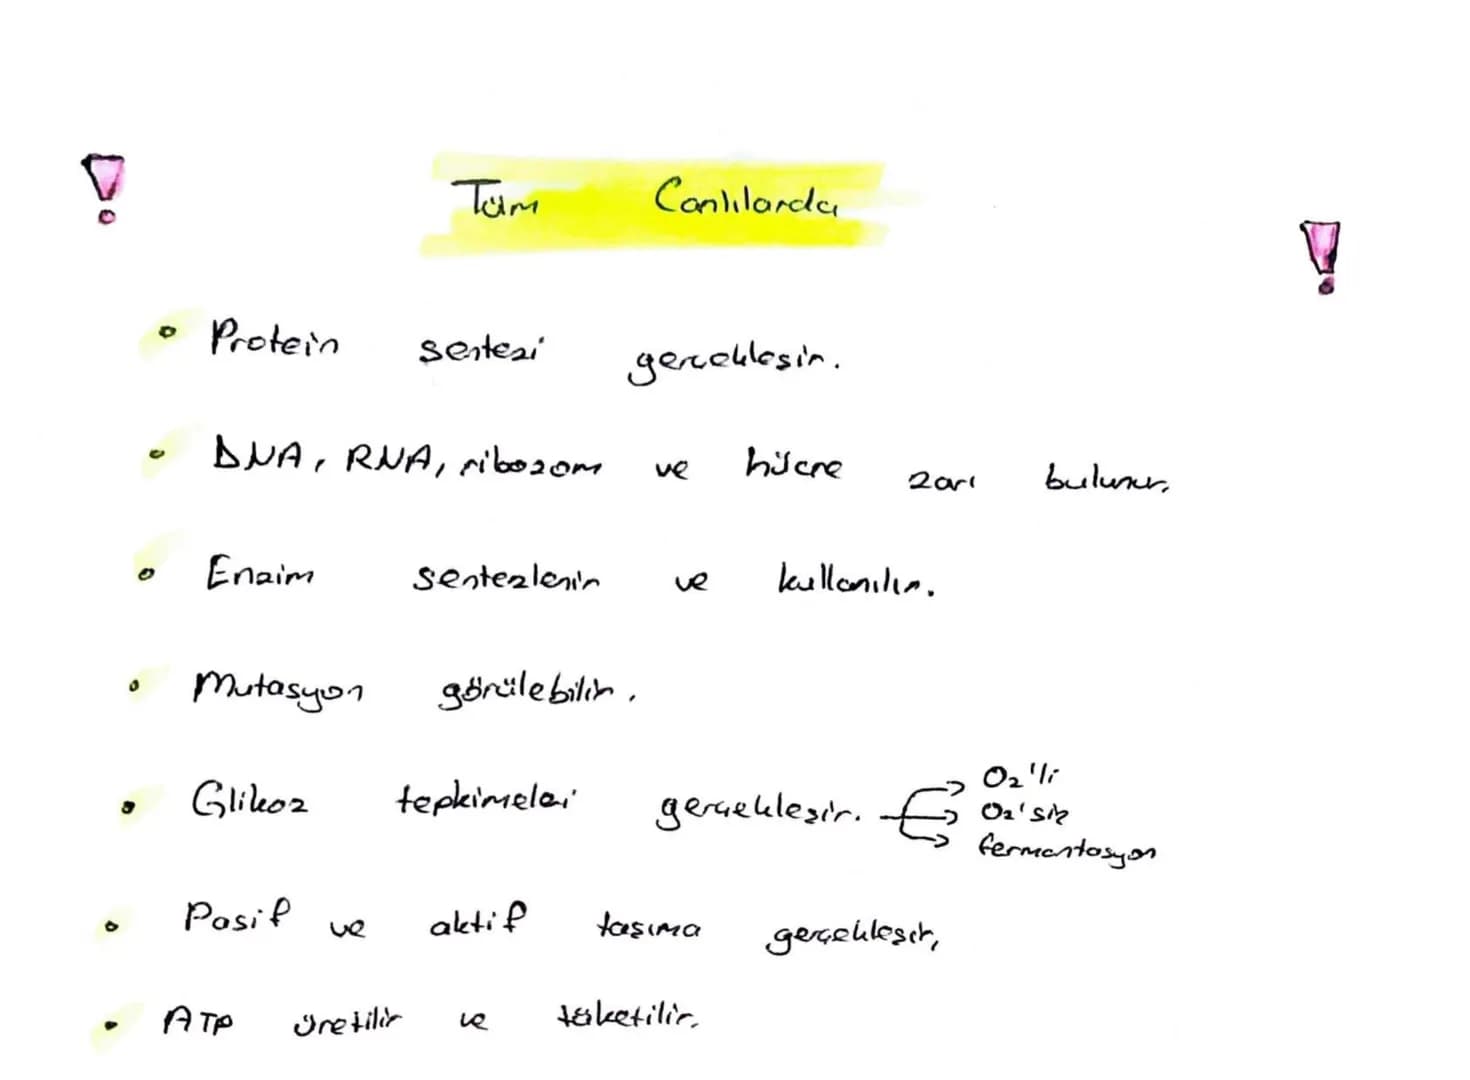 Tüm Canlılarda
Protein sentezi gerçekleşir.
DNA, RNA, ribozom ve hücre zarı bulunur.
Enzim sentezlenir ve kullanılır.
Mutasyon görülebilir.
Glikoz tepkimeleri gerçekleşir. → O2'li
→ O2'siz
→ fermantasyon
Pasif ve aktif taşıma gerçekleşir.
ATP üretilir ve tüketilir.